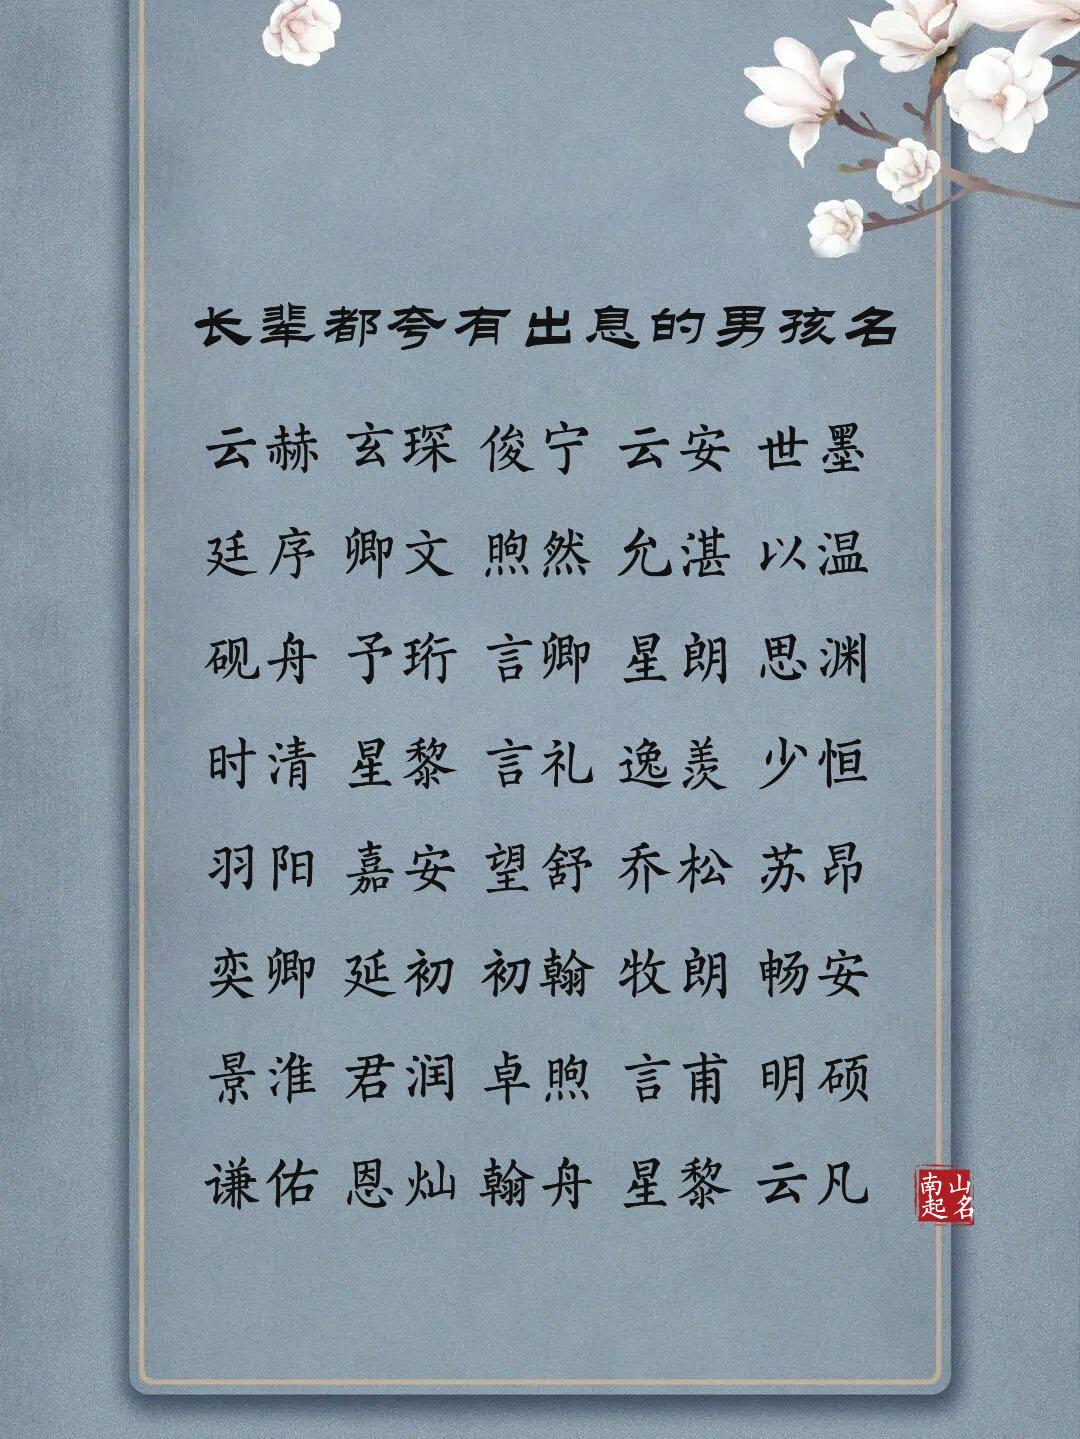 长辈都夸有出息的男孩名
云赫 玄琛 俊宁 云安 世墨
廷序 卿文 煦然 允湛 以温
砚舟 予珩 言卿 星朗 思渊
时清 星黎 言礼 逸羡 少恒
羽阳 嘉安 望舒 乔松 苏昂
奕卿 延初 初翰 牧朗 畅安
景淮 君润 卓煦 言甫 明硕
谦佑 恩灿 翰舟 星黎 云凡
南山
起名